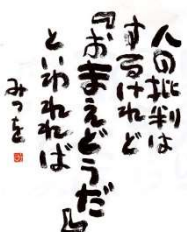 人の批判は
するけれど
『おまえどうだ』
といわれれば
みつを